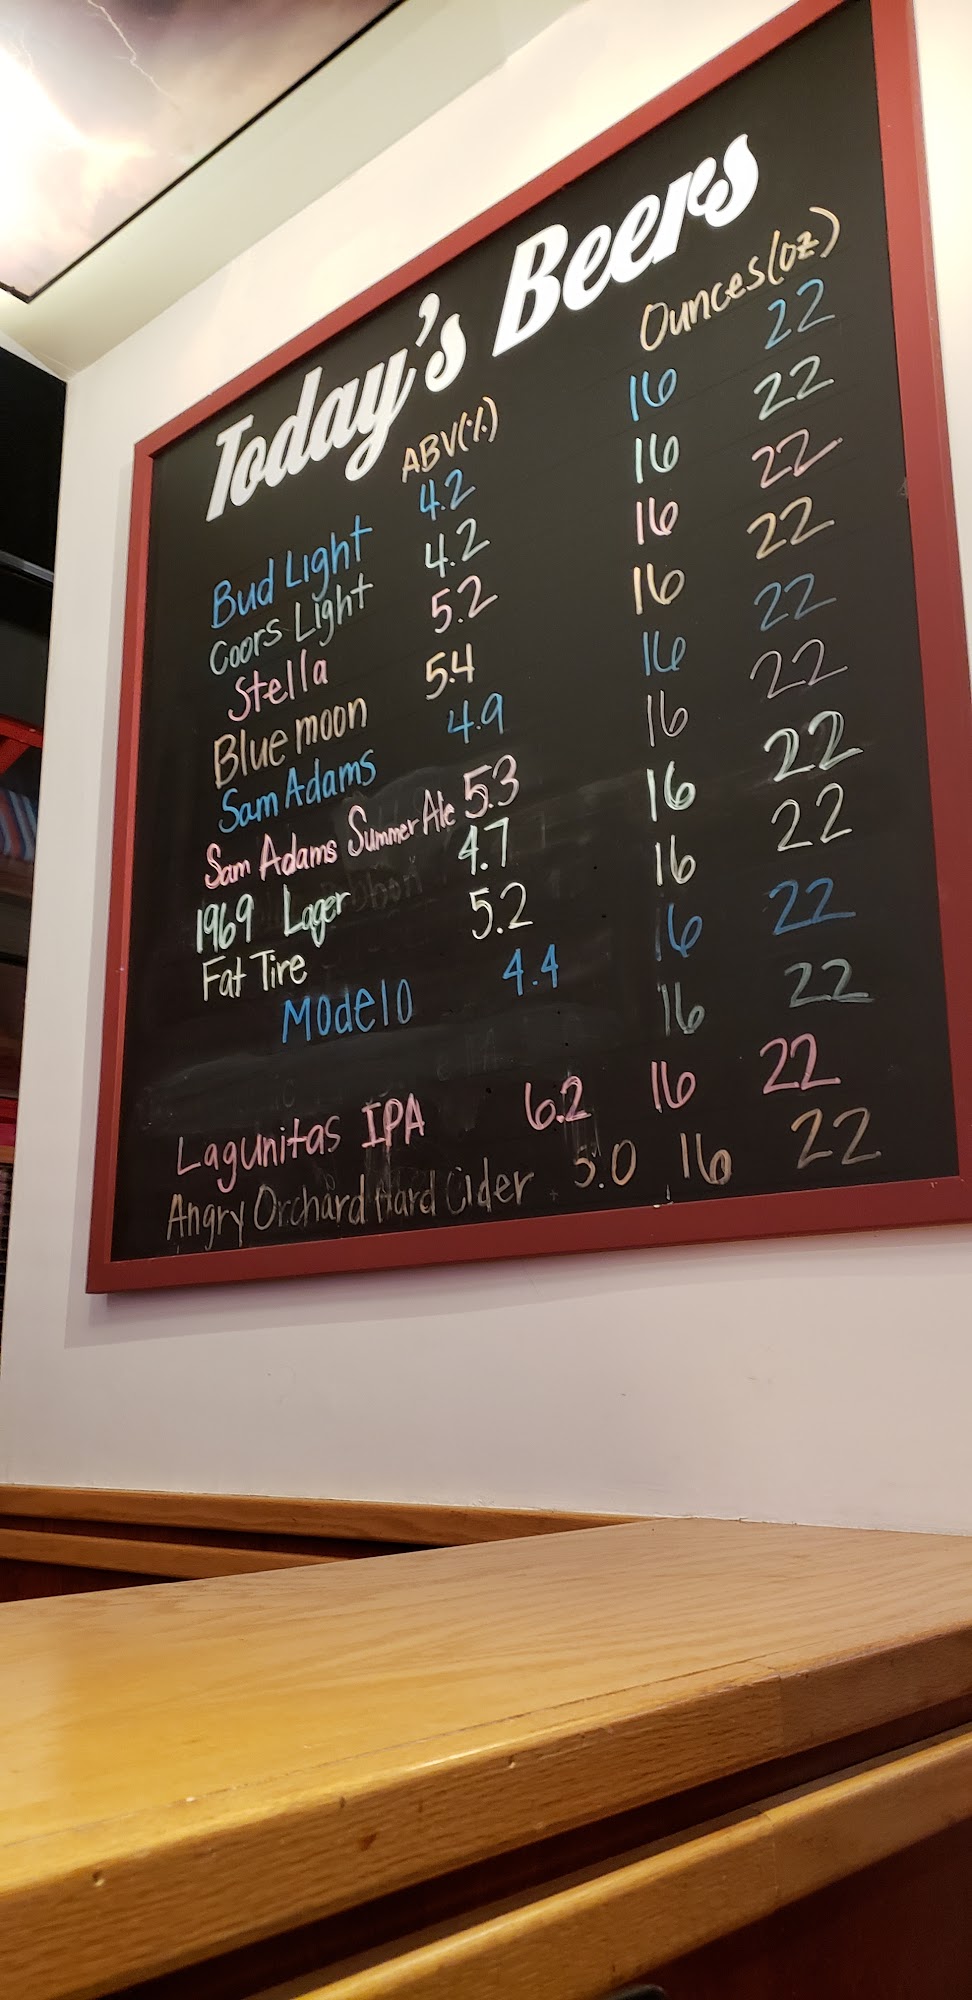 Today's Beers
ABV(%) Ounces(oz)
Bud Light 4.2 16 22
Coors Light 4.2 16 22
Stella 5.2 16 22
Blue moon 5.4 16 22
Sam Adams 4.9 16 22
Sam Adams Summer Ale 5.3 16 22
1969 Lager 4.7 16 22
Fat Tire 5.2 16 22
Modelo 4.4 16 22
16 22
Lagunitas IPA 6.2 16 22
Angry Orchard Hard Cider 5.0 16 22